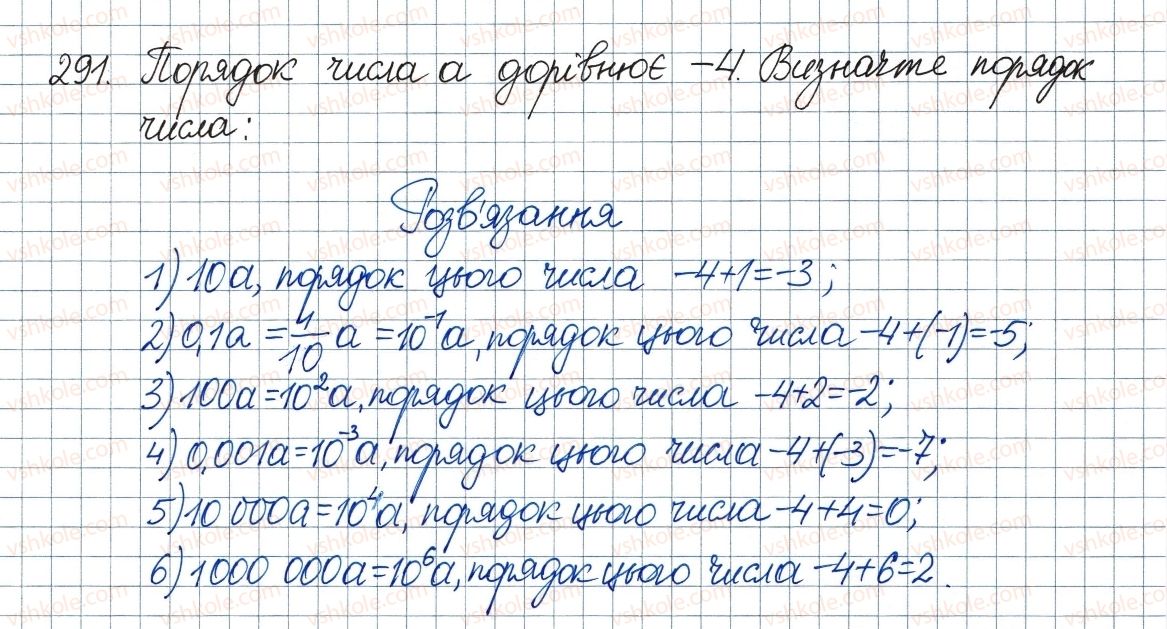 291. Порядок числа a дорівнює -4. Визначте порядок
числа:
Розв'язання
1) 10a, порядок цього числа -4+1=-3;
2) 0,1a = 1/10 a = 10⁻¹a, порядок цього числа -4+(-1)=-5;
3) 100a=10²a, порядок цього числа -4+2=-2;
4) 0,001a=10⁻³a, порядок цього числа -4+(-3)=-7;
5) 10 000a=10⁴a, порядок цього числа -4+4=0;
6) 1000 000a=10⁶a, порядок цього числа -4+6=2.
vshkole.com